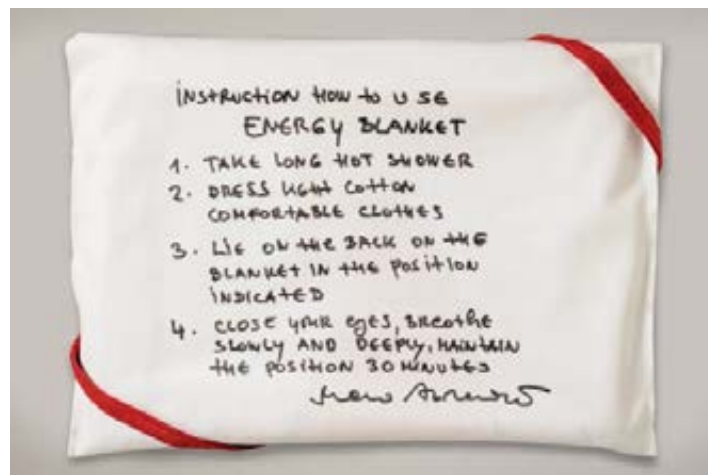 INSTRUCTION HOW to USE
ENERGY BLANKET
1. TAKE LONG HOT SHOWER
2. DRESS LIGHT COTTON
COMFORTABLE CLOTHES
3. LIE ON THE BACK ON THE
BLANKET IN THE POSITION
INDICATED
4. CLOSE YOUR EYES, BREATHE
SLOWLY AND DEEPLY, MAINTAIN
THE POSITION 30 MINUTES